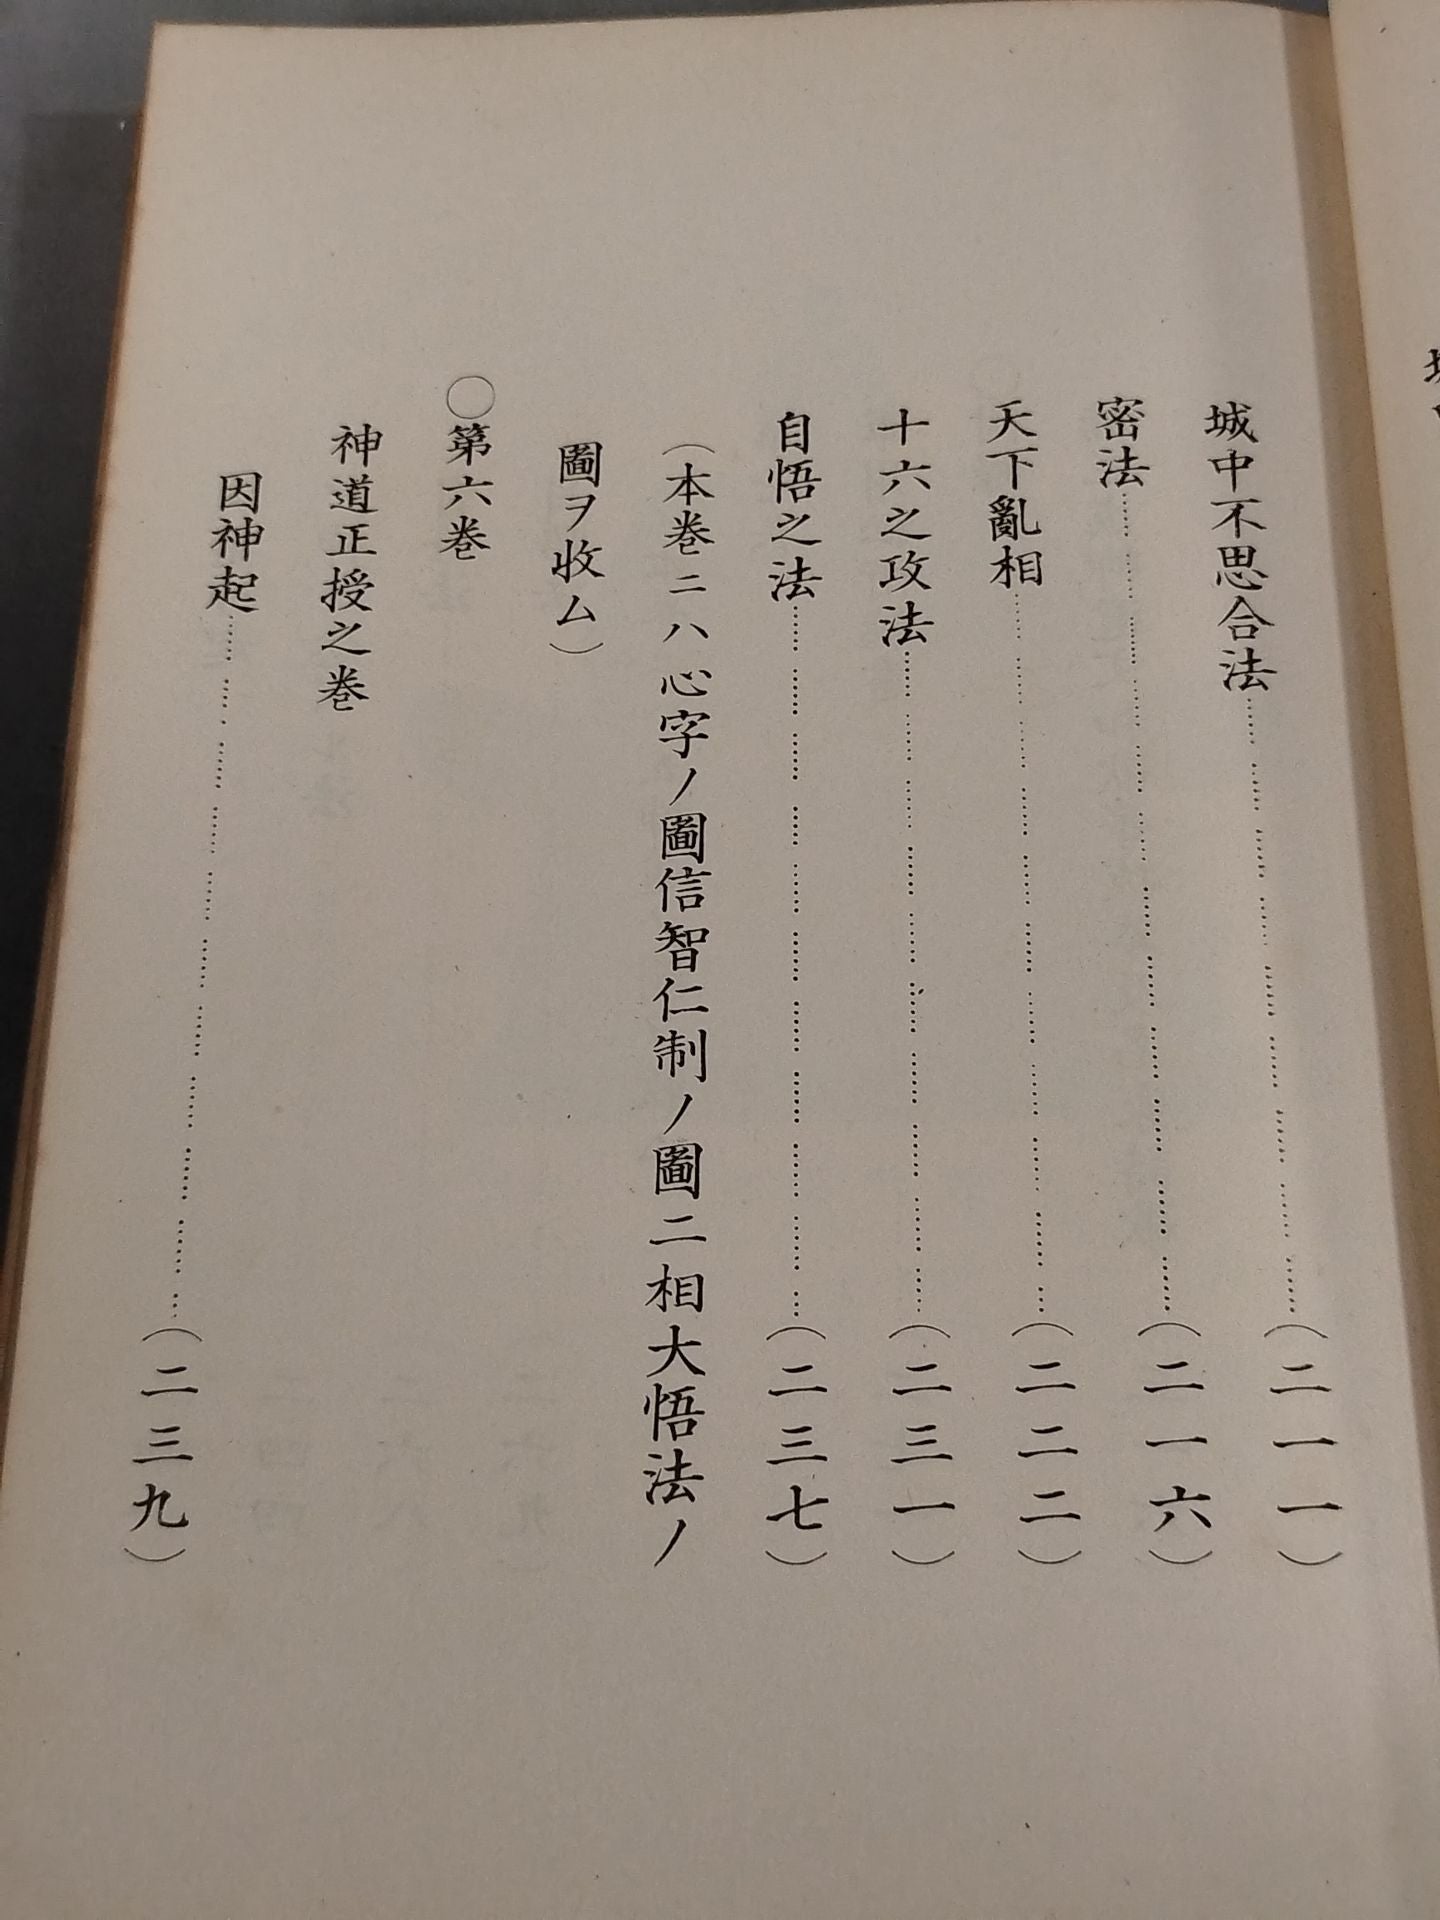 城中不思合法………………(二一一)
密法………………(二一六)
天下亂相………………(二二二)
十六之攻法………………(二三一)
自悟之法………………(二三七)
(本巻ニハ心字ノ圖信智仁制ノ圖二相大悟法ノ
圖ヲ收ム)
○第六巻
神道正授之巻
因神起………………(二三九)